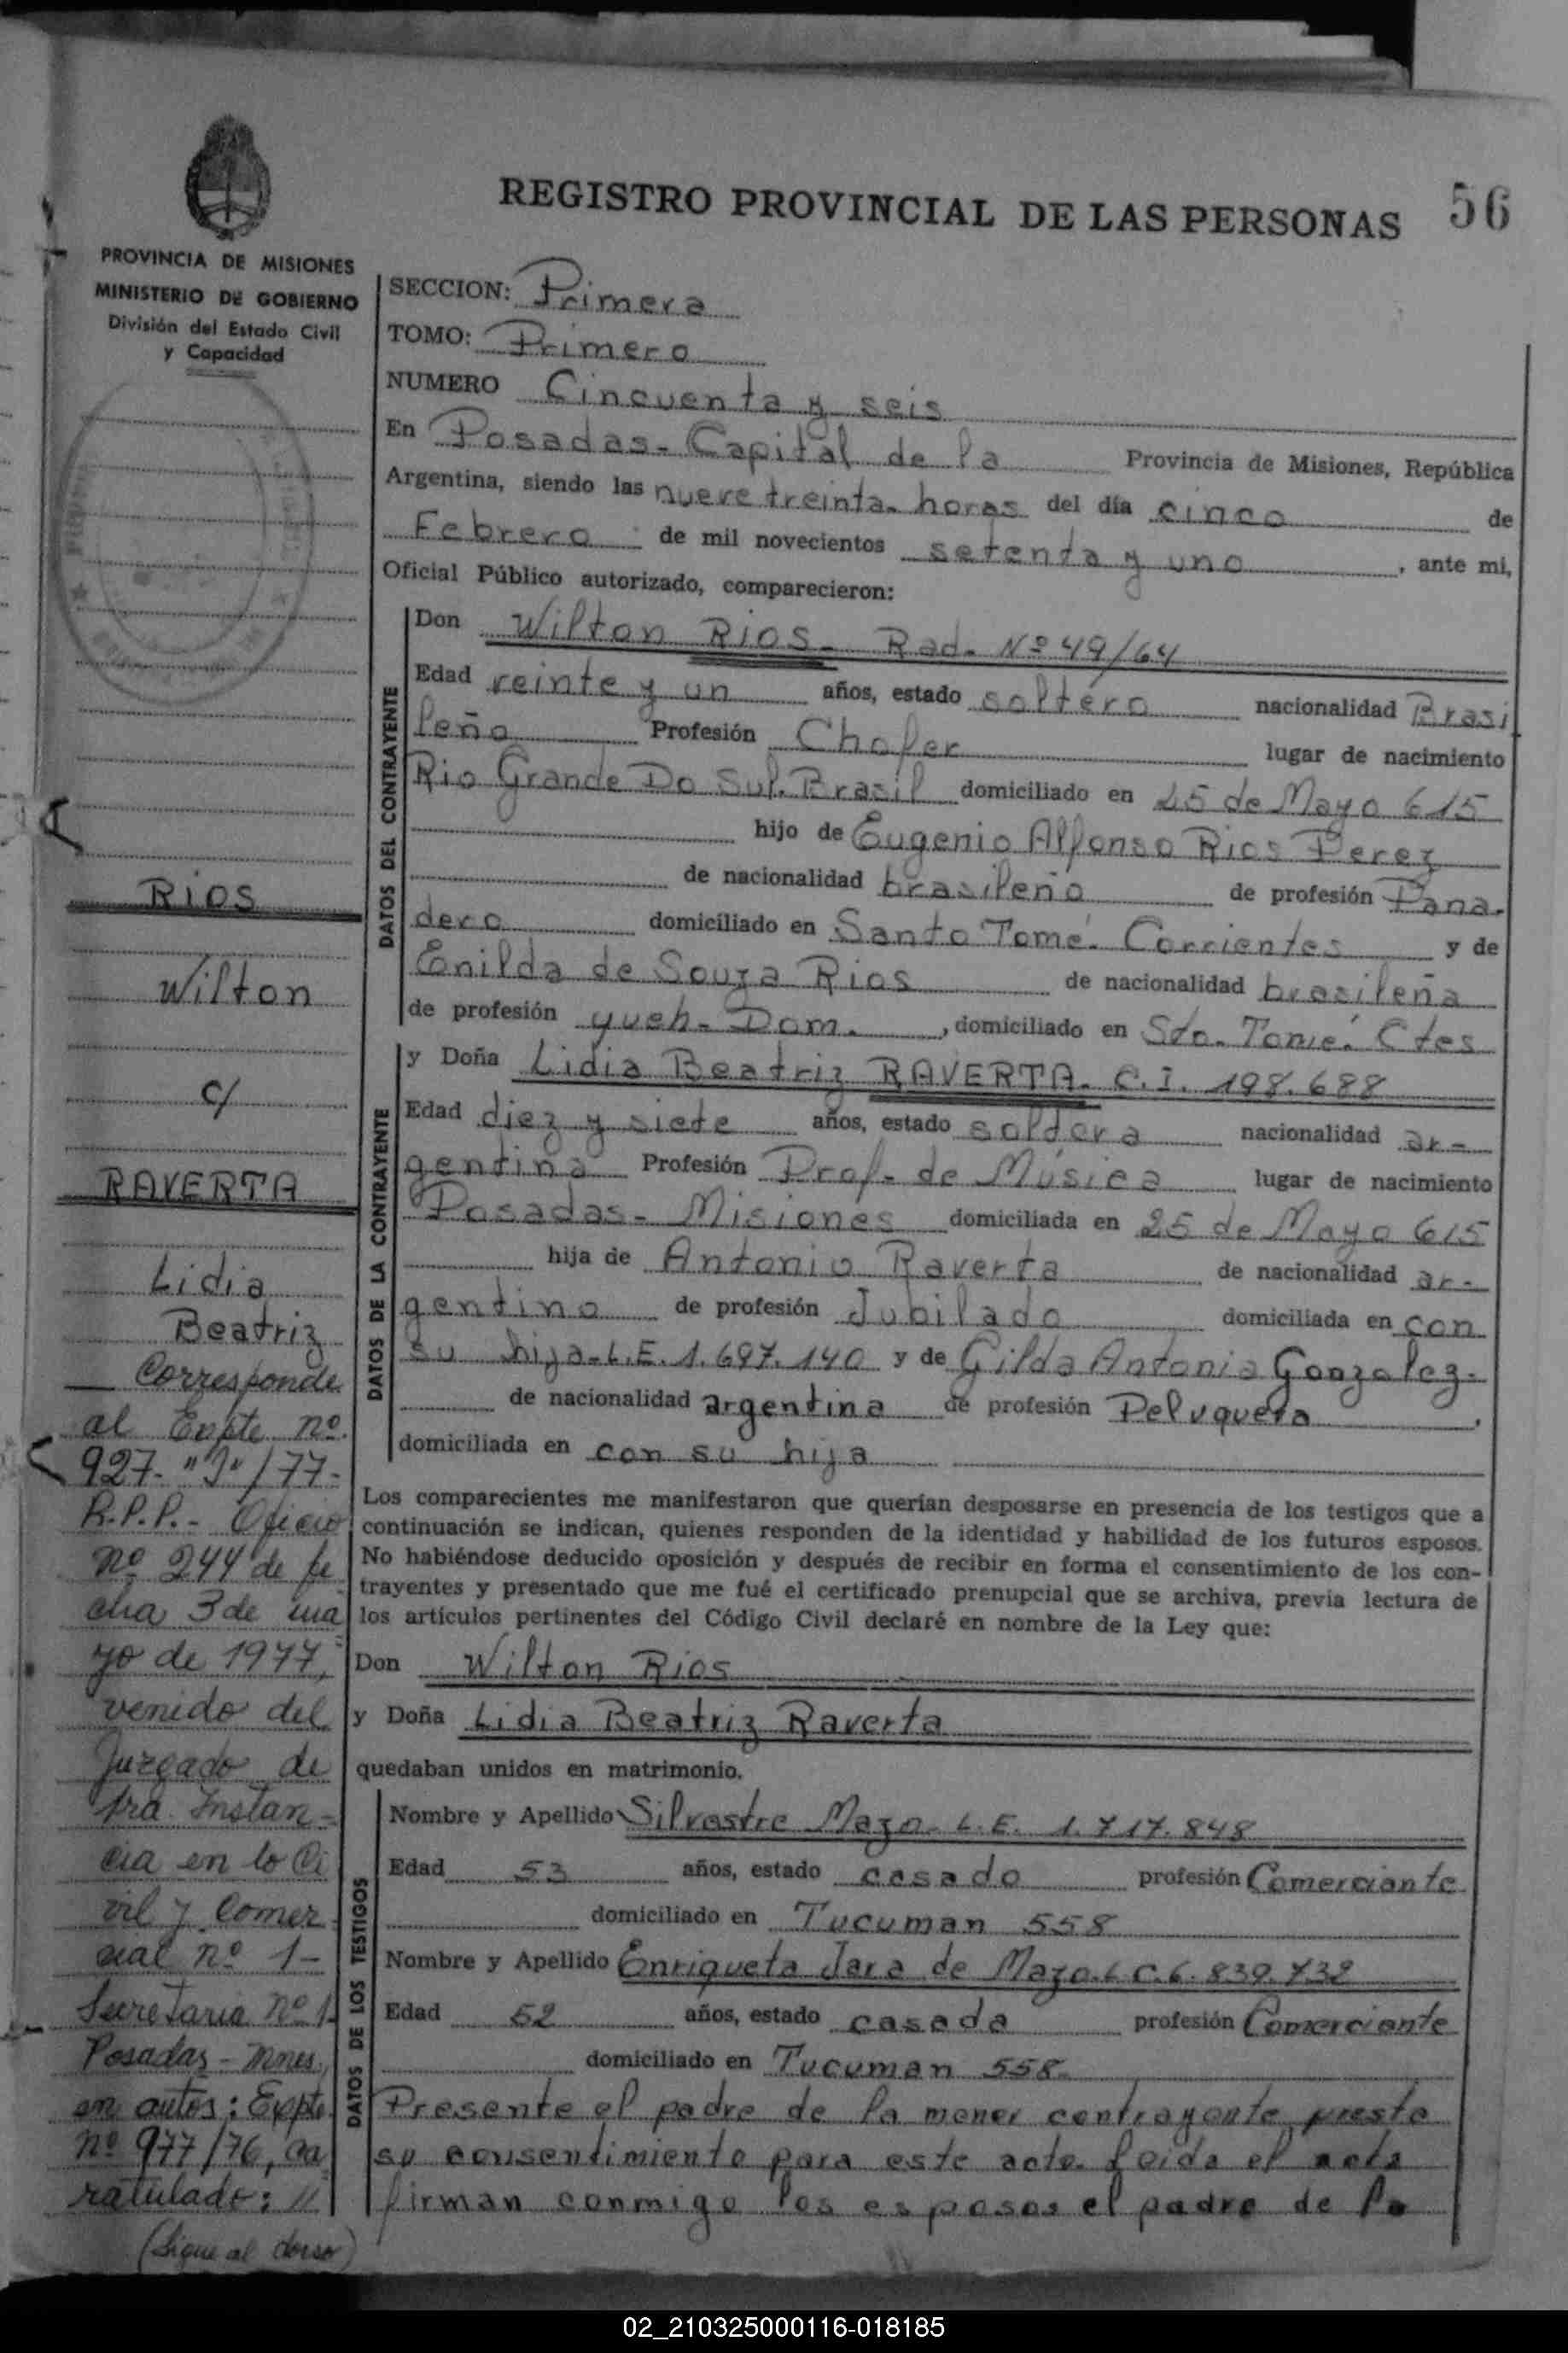 REGISTRO PROVINCIAL DE LAS PERSONAS 56
PROVINCIA DE MISIONES
MINISTERIO DE GOBIERNO
División del Estado Civil
y Capacidad
SECCION: Primera
TOMO: Primero
NUMERO Cincuenta y seis
En Posadas - Capital de la Provincia de Misiones, República
Argentina, siendo las nueve treinta - horas del día cinco de
Febrero de mil novecientos setenta y uno, ante mi,
Oficial Público autorizado, comparecieron:
DATOS DEL CONTRAYENTE
Don Wilton RIOS - Rad. Nº 49/64
Edad veinte y un años, estado soltero nacionalidad Brasi
leño Profesión Chofer lugar de nacimiento
Rio Grande Do Sul. Brasil domiciliado en 25 de Mayo 615
hijo de Eugenio Alfonso Rios Perez
de nacionalidad brasileño de profesión Pana-
dero domiciliado en Santo Tomé. Corrientes y de
Enilda de Souza Rios de nacionalidad brasileña
de profesión queh - Dom., domiciliado en Sto. Tomé. Ctes
DATOS DE LA CONTRAYENTE
y Doña Lidia Beatriz RAVERTA - C.I. 198.688
Edad diez y siete años, estado soltera nacionalidad ar-
gentina Profesión Prof - de Música lugar de nacimiento
Posadas - Misiones domiciliada en 25 de Mayo 615
hija de Antonio Raverta de nacionalidad ar-
gentino de profesión Jubilado domiciliada en con
su hija - L.E. 1.697.140 y de Gilda Antonia Gonzalez -
de nacionalidad argentina de profesión Peluquera,
domiciliada en con su hija
Los comparecientes me manifestaron que querían desposarse en presencia de los testigos que a
continuación se indican, quienes responden de la identidad y habilidad de los futuros esposos.
No habiéndose deducido oposición y después de recibir en forma el consentimiento de los con-
trayentes y presentado que me fué el certificado prenupcial que se archiva, previa lectura de
los artículos pertinentes del Código Civil declaré en nombre de la Ley que:
Don Wilton Rios
y Doña Lidia Beatriz Raverta
quedaban unidos en matrimonio.
DATOS DE LOS TESTIGOS
Nombre y Apellido Silvestre Mazo - L.E. 1.717.848
Edad 53 años, estado casado profesión Comerciante
domiciliado en Tucuman 558
Nombre y Apellido Enriqueta Jara de Mazo. L C. 6.839.732
Edad 52 años, estado casada profesión Comerciante
domiciliado en Tucuman 558 -
Presente el padre de la menor contrayente, presta
su consentimiento para este acto. Leida el acta
firman conmigo los esposos el padre de la
RIOS
Wilton
c/
RAVERTA
Lidia
Beatriz
Corresponde
al Expte nº
927- "J"/77-
R.P.P. - Oficio
nº 244 de fe
cha 3 de ma
yo de 1977,
venido del
Juzgado de
1ra. Instan-
cia en lo Ci
vil y Comer
cial nº 1-
Secretaria nº 1
Posadas - Mnes.
en autos: Expte
nº 977/76, ca
ratulado: //
(Sigue al dorso)
02_210325000116-018185